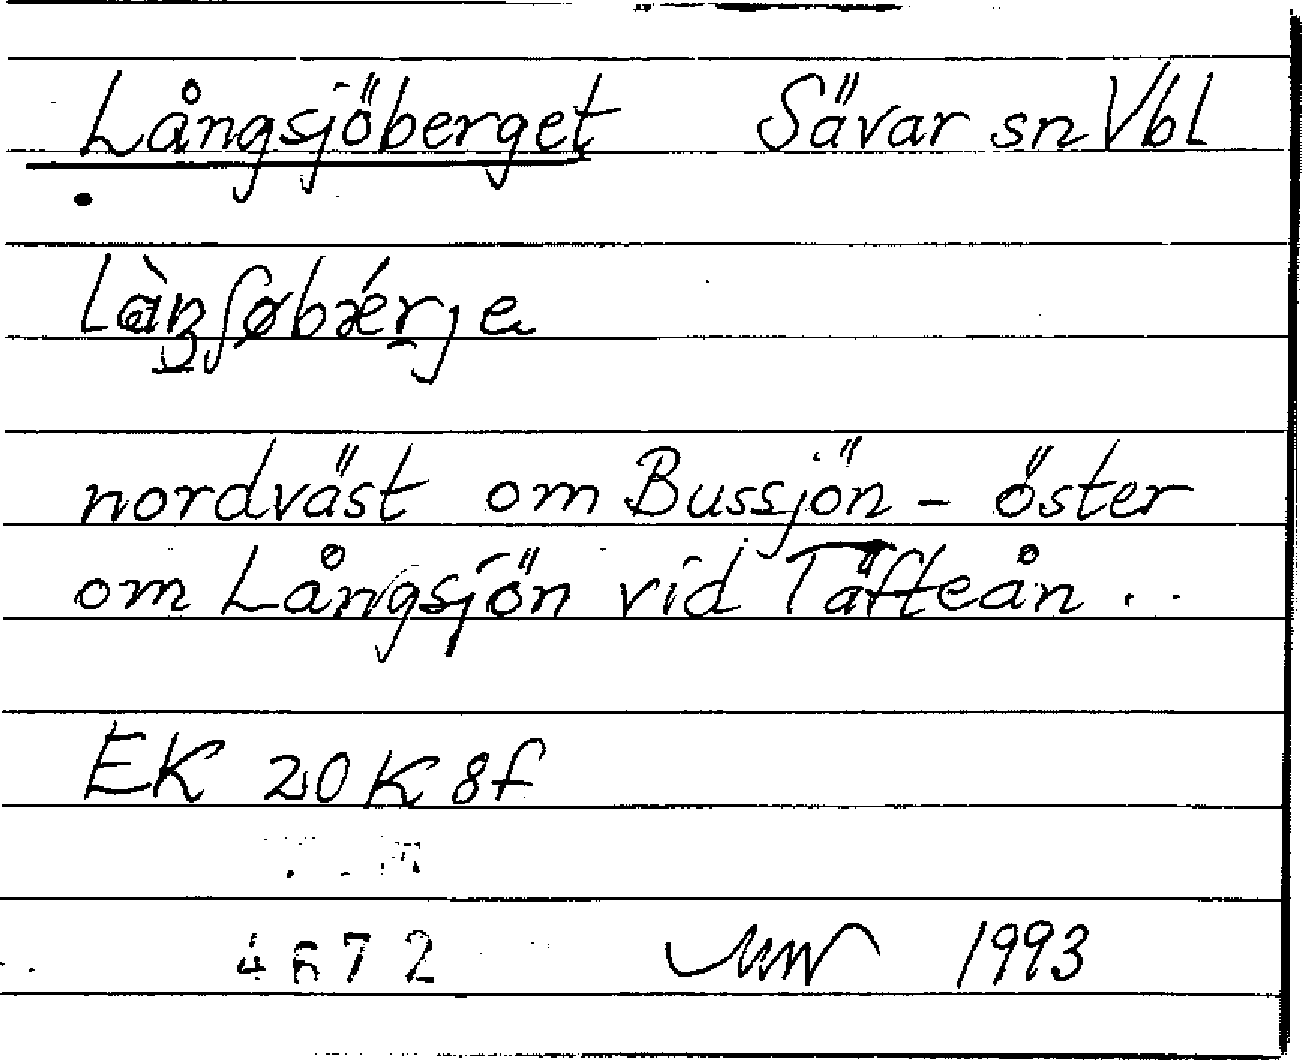 Långsjöberget Sävar sn Vbl
nordväst om Bussjön - öster
om Långsjön vid Täfteån . .
EK 20K 8f
4672 1993